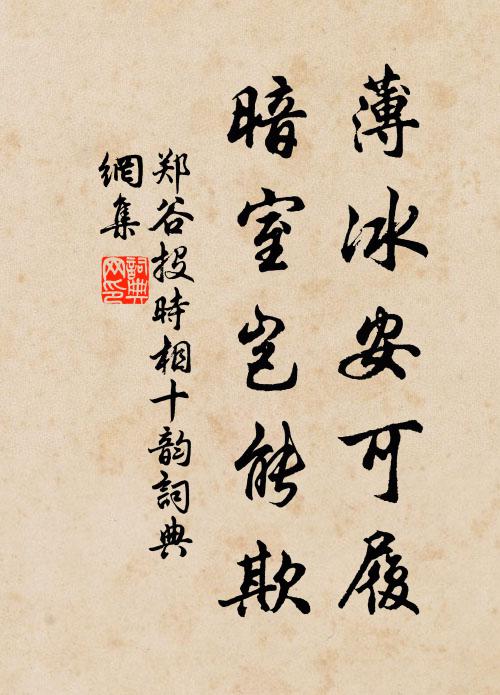 薄冰安可履
暗室岂能欺
郑谷投时相十韵詞典
網集
詞典
网印